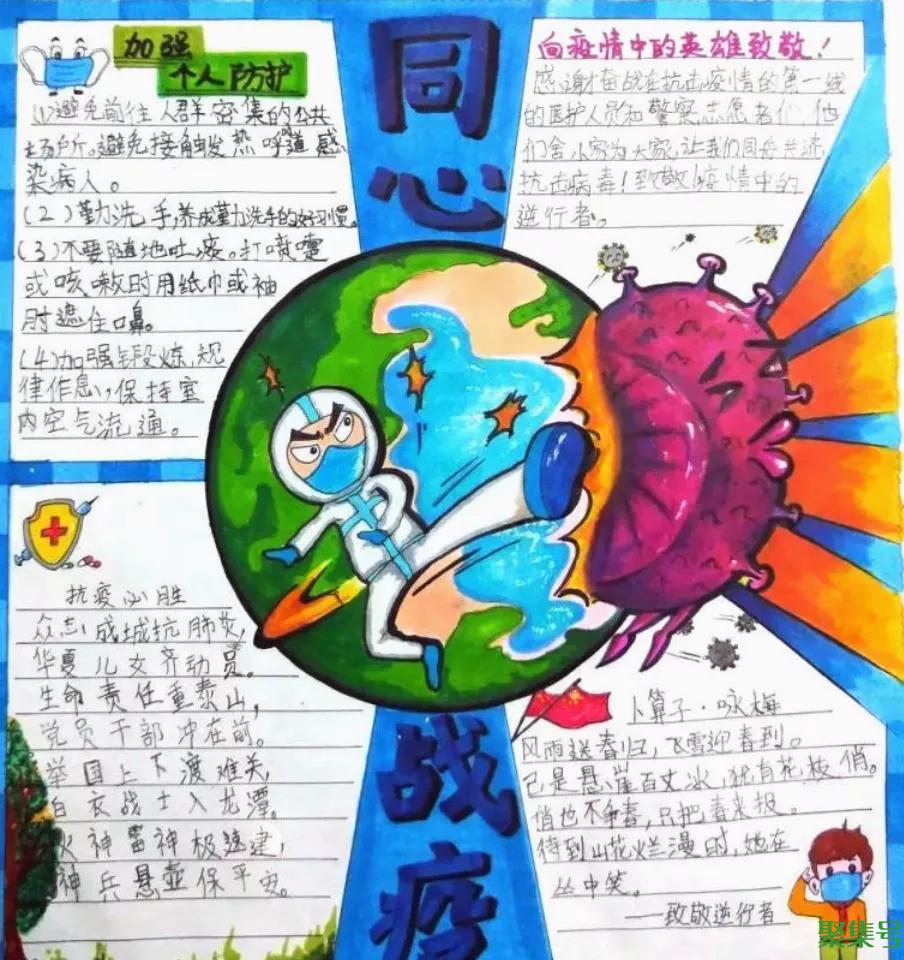 同心战疫
加强
个人防护
(1)避免前往人群密集的公共
场所。避免接触发热呼吸道感
染病人。
(2)勤洗手,养成勤洗手的好习惯。
(3)不要随地吐痰。打喷嚏
或咳嗽时用纸巾或袖
肘遮住口鼻。
(4)加强锻炼,规
律作息,保持室
内空气流通。
向疫情中的英雄致敬!
感谢才奋战在抗击疫情的第一线
的医护人员和警察志愿者们,他
们舍小家为大家,让我们同舟共济,
抗击病毒!致敬疫情中的
逆行者。
抗疫必胜
众志成城抗肺炎,
华夏儿女齐动员。
生命责任重泰山,
党员干部冲在前。
举国上下渡难关,
白衣战士入龙潭。
火神雷神极速建,
神兵悬壶保平安。
卜算子·咏梅
风雨送春归,飞雪迎春到。
已是悬崖百丈冰,犹有花枝俏。
俏也不争春,只把春来报。
待到山花烂漫时,她在
丛中笑。
——致敬逆行者
聚集号